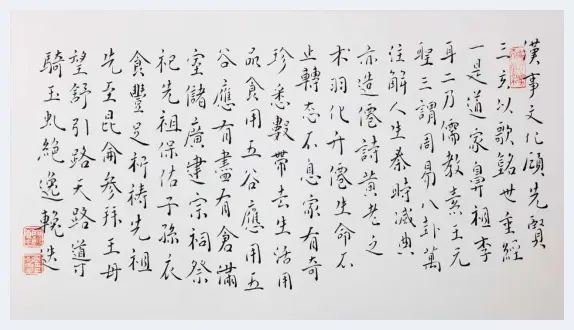 漢事文化頌先賢
三玄以歌銘世重經
一是道家鼻祖李
耳二乃儒教素王元
聖三謂周易八卦萬
注解人生秦時滅典
亦造僊詩黄老之
术羽化升僊生命不
止轉态不息家有奇
珍悉數帶去生活用
品食用五谷應用五
谷應有盡有倉滿
室儲廣建宗祠祭
祀先祖保佑子孫衣
食豐足祈禱先祖
先至昆侖參拜王母
望舒引路天路導寸
騎玉虬絕逸輓迷